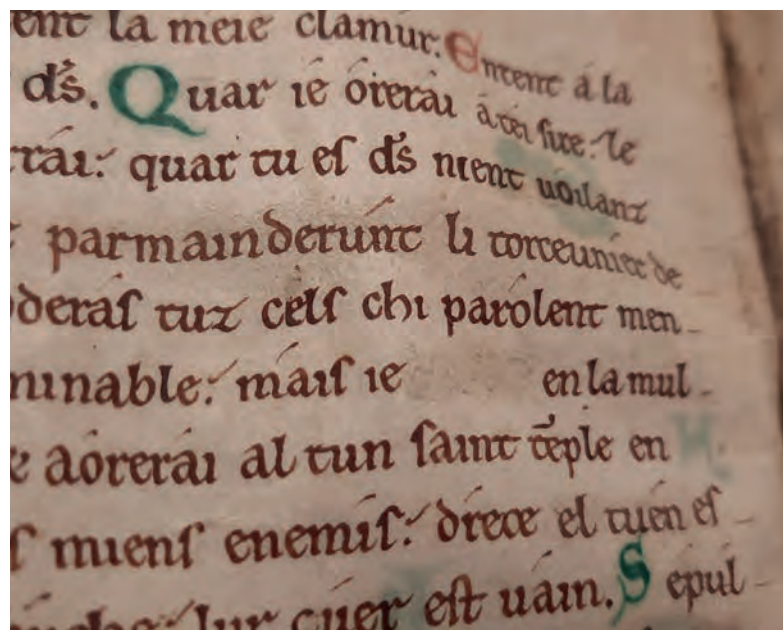 ent la meie clamur. Entent á la
dſ̄. Quar ié órerái á tei ſire. le
rái: quar tu eſ dſ̄ nient uoilanz
parmainderunt li torceunier de
deráſ tuz célſ chi parólent men
minable: máiſ ie en la mul
aórerái al tun ſaint tēple en
ſ mienſ enemíſ: drece el tuén eſ
lur cúer eſt uáin. Sepul